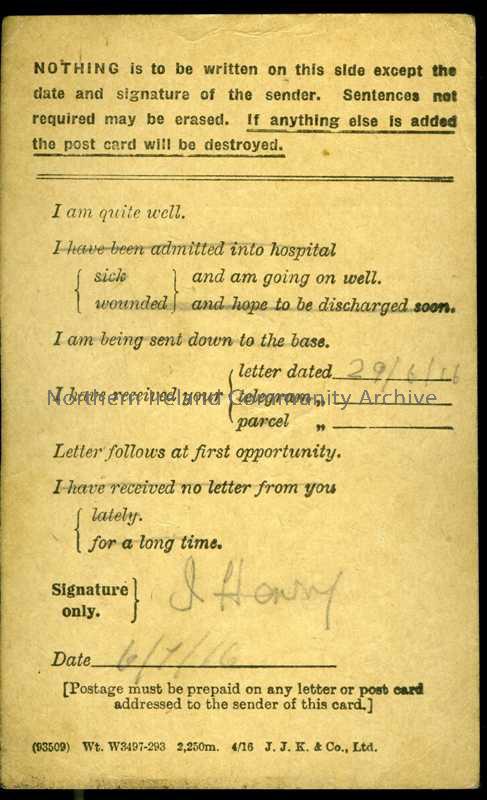 NOTHING is to be written on this side except the
date and signature of the sender. Sentences not
required may be erased. If anything else is added
the post card will be destroyed.
I am quite well.
I have been admitted into hospital
sick
and am going on well.
wounded
and hope to be discharged soon.
I am being sent down to the base.
letter dated 29/6/16
I have received your
telegram „
parcel „
Northern Ireland Community Archive
Letter follows at first opportunity.
I have received no letter from you
lately.
for a long time.
Signature
only.
J Henry
Date 6/7/16
[Postage must be prepaid on any letter or post card
addressed to the sender of this card.]
(93509) Wt. W3497-293 2,250m. 4/16 J. J. K. & Co., Ltd.